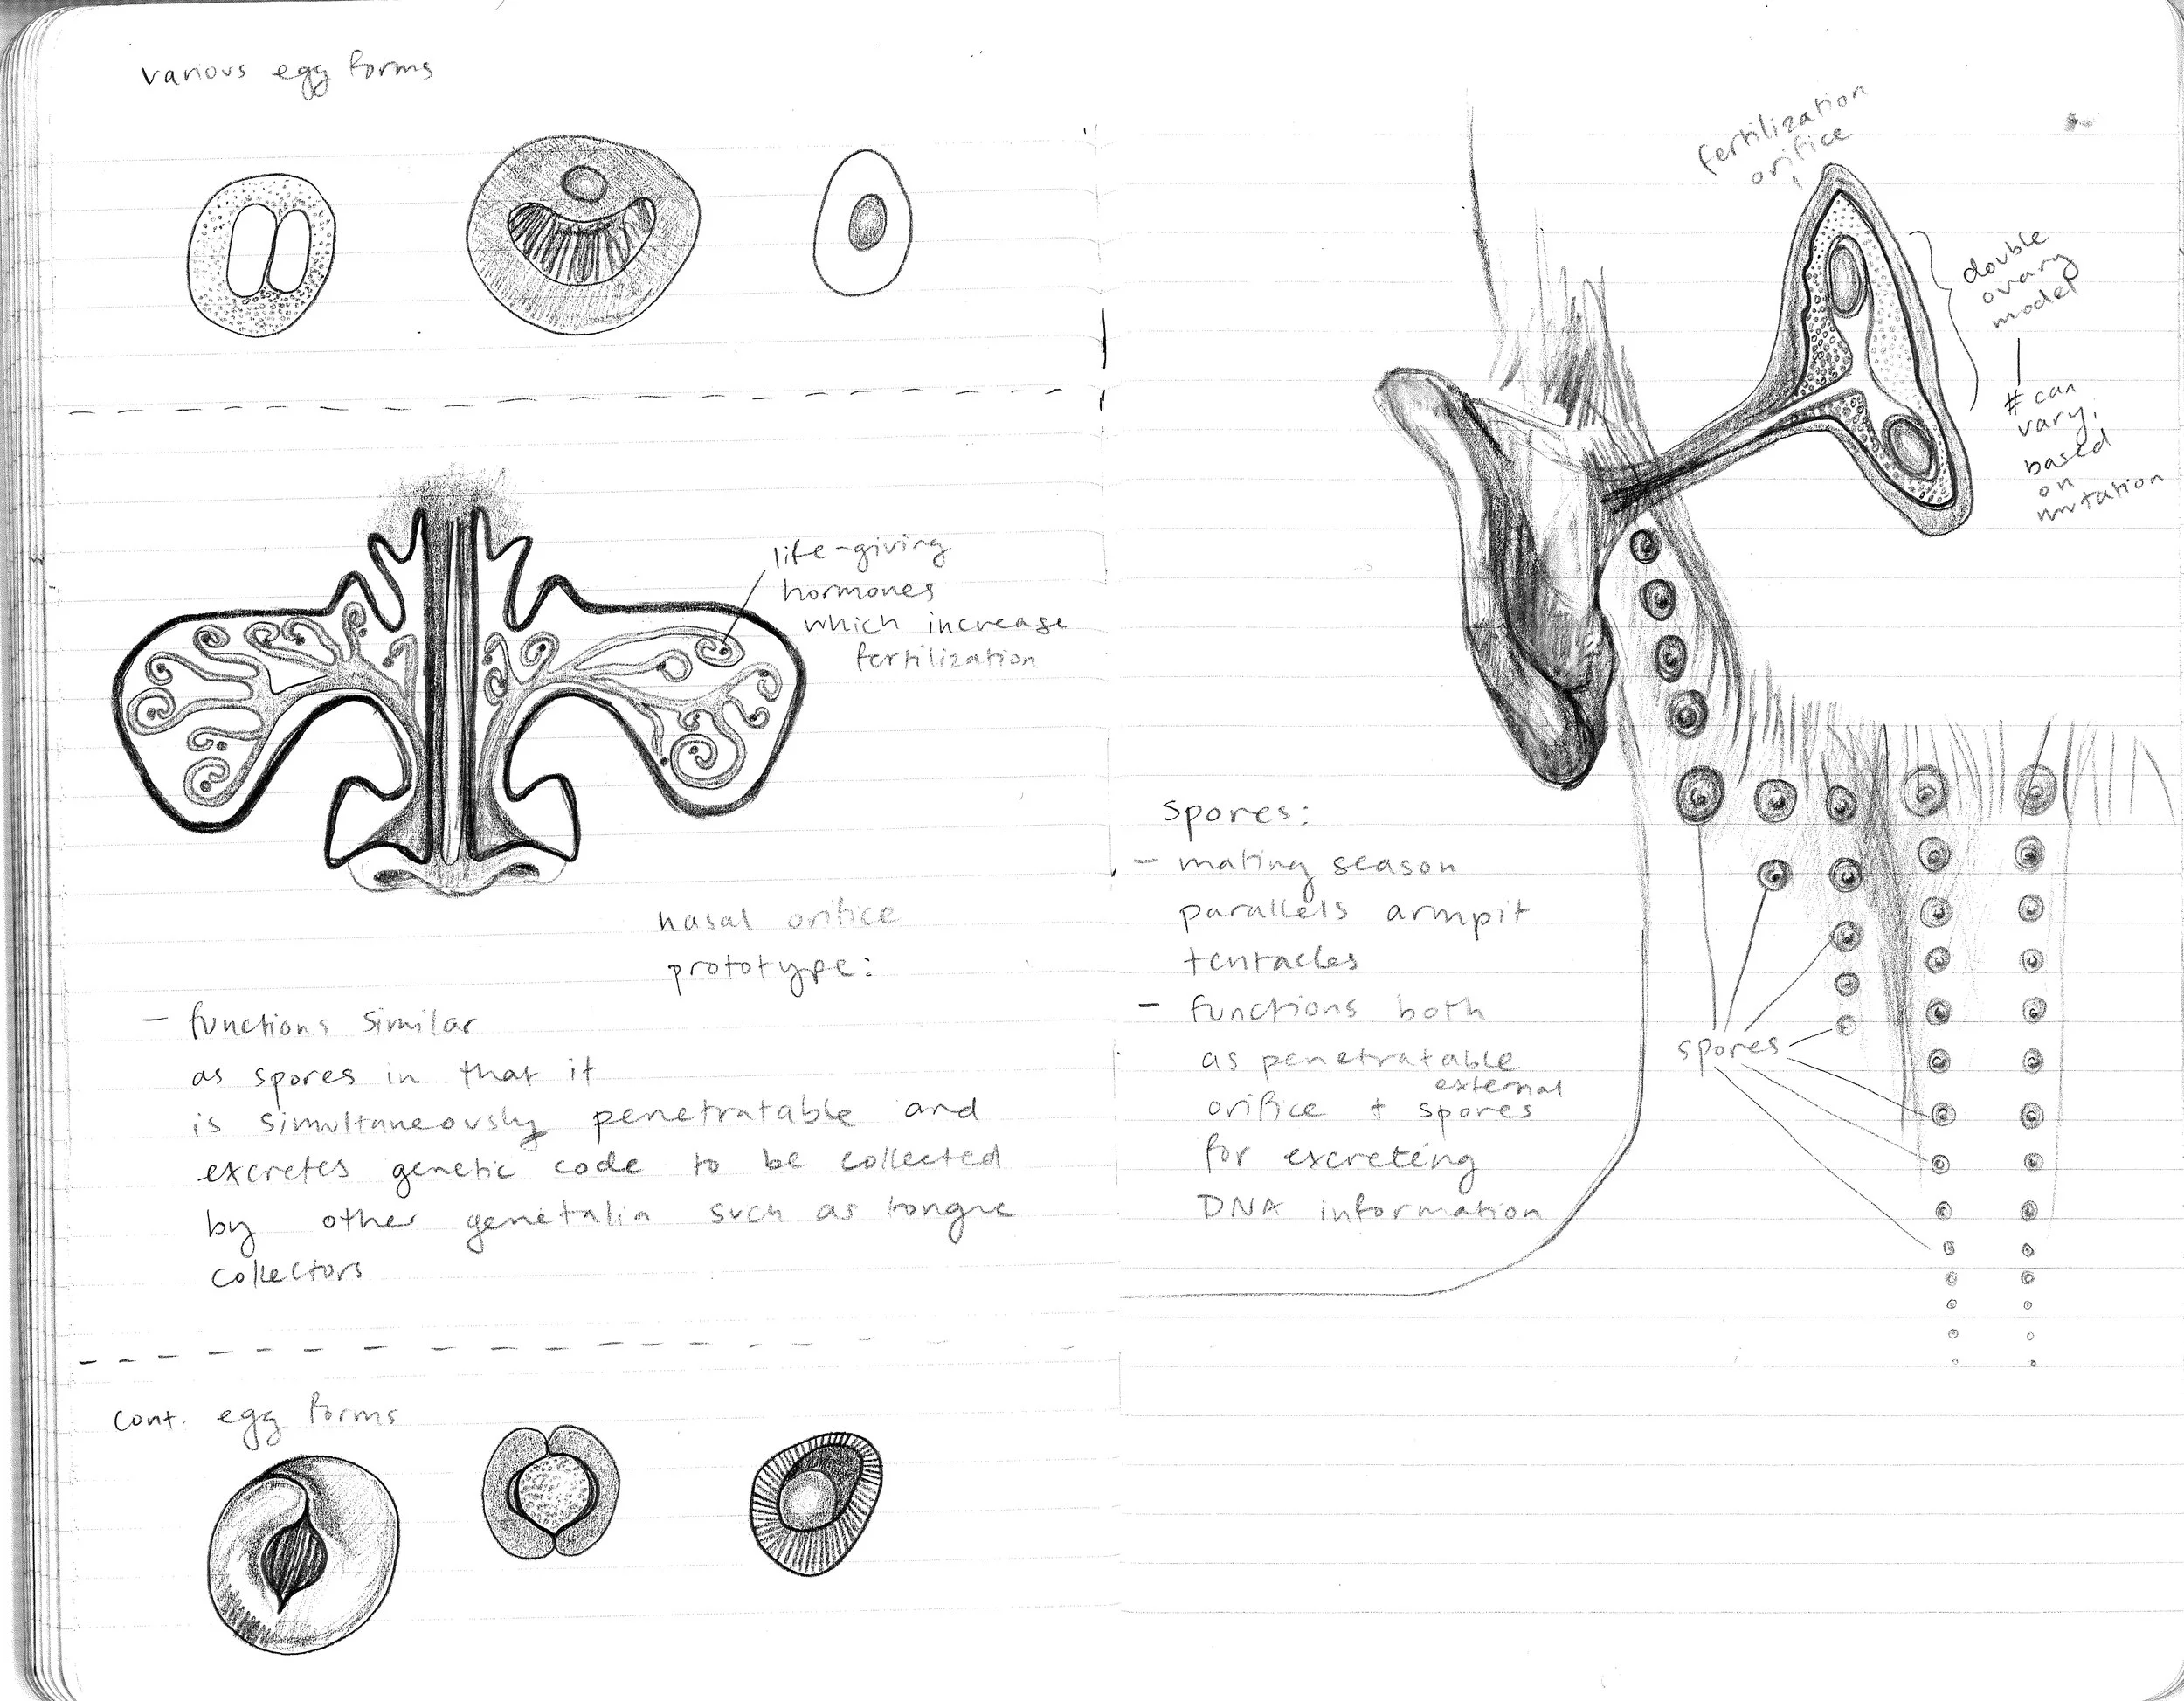 various egg forms
life-giving
hormones
which increase
fertilization
nasal orifice
prototype:
- functions similar
as spores in that it
is simultaneously penetratable and
excretes genetic code to be collected
by other genetalia such as tongue
collectors
cont. egg forms
fertilization
orifice
double
ovary
model
# can
vary,
based
on
mutation
spores:
- mating season
parallels armpit
tentacles
- functions both
as penetratable
external
orifice + spores
for excreting
DNA information
spores